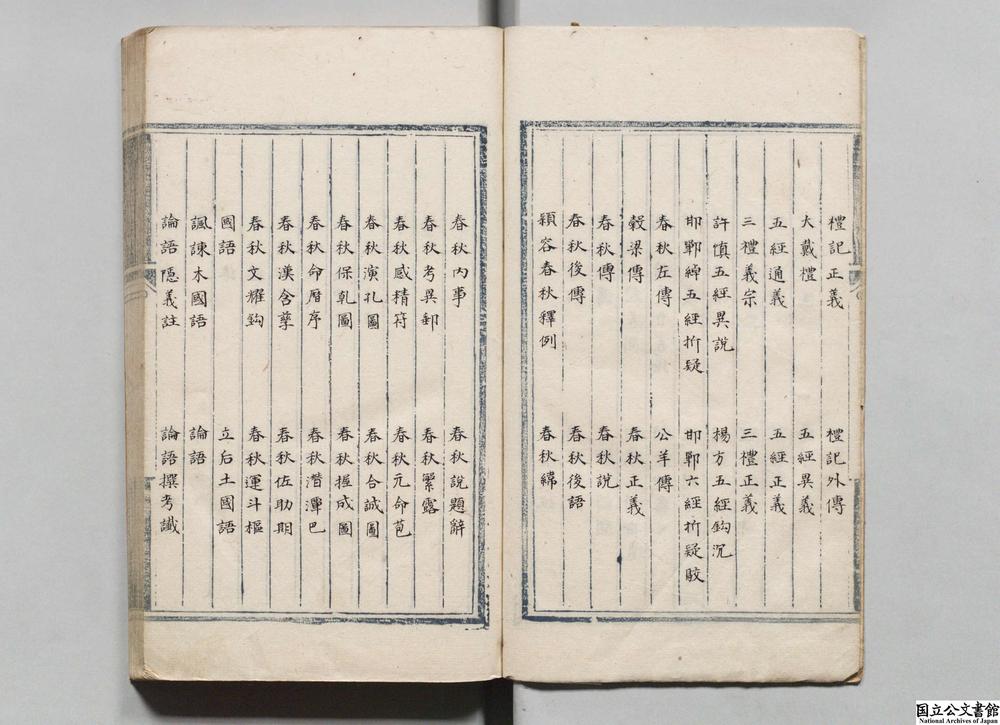 禮記正義 禮記外傳
大戴禮 五經異義
五經通義 五經正義
三禮義宗 三禮正義
許慎五經異說 楊方五經鈎沉
邯鄲綽五經折疑 邯鄲六經折疑䟽
春秋左傳 公羊傳
穀梁傳 春秋正義
春秋傳 春秋說
春秋後傳 春秋後語
潁容春秋釋例 春秋緯
春秋內事 春秋說題辭
春秋考異郵 春秋繁露
春秋感精符 春秋元命苞
春秋演孔圖 春秋合誠圖
春秋保乾圖 春秋握成圖
春秋命曆序 春秋潛潭巴
春秋漢含孳 春秋佐助期
春秋文耀鈎 春秋運斗樞
國語 立后土國語
諷諫木國語 論語
論語隱義註 論語撰考讖
国立公文書館
National Archives of Japan